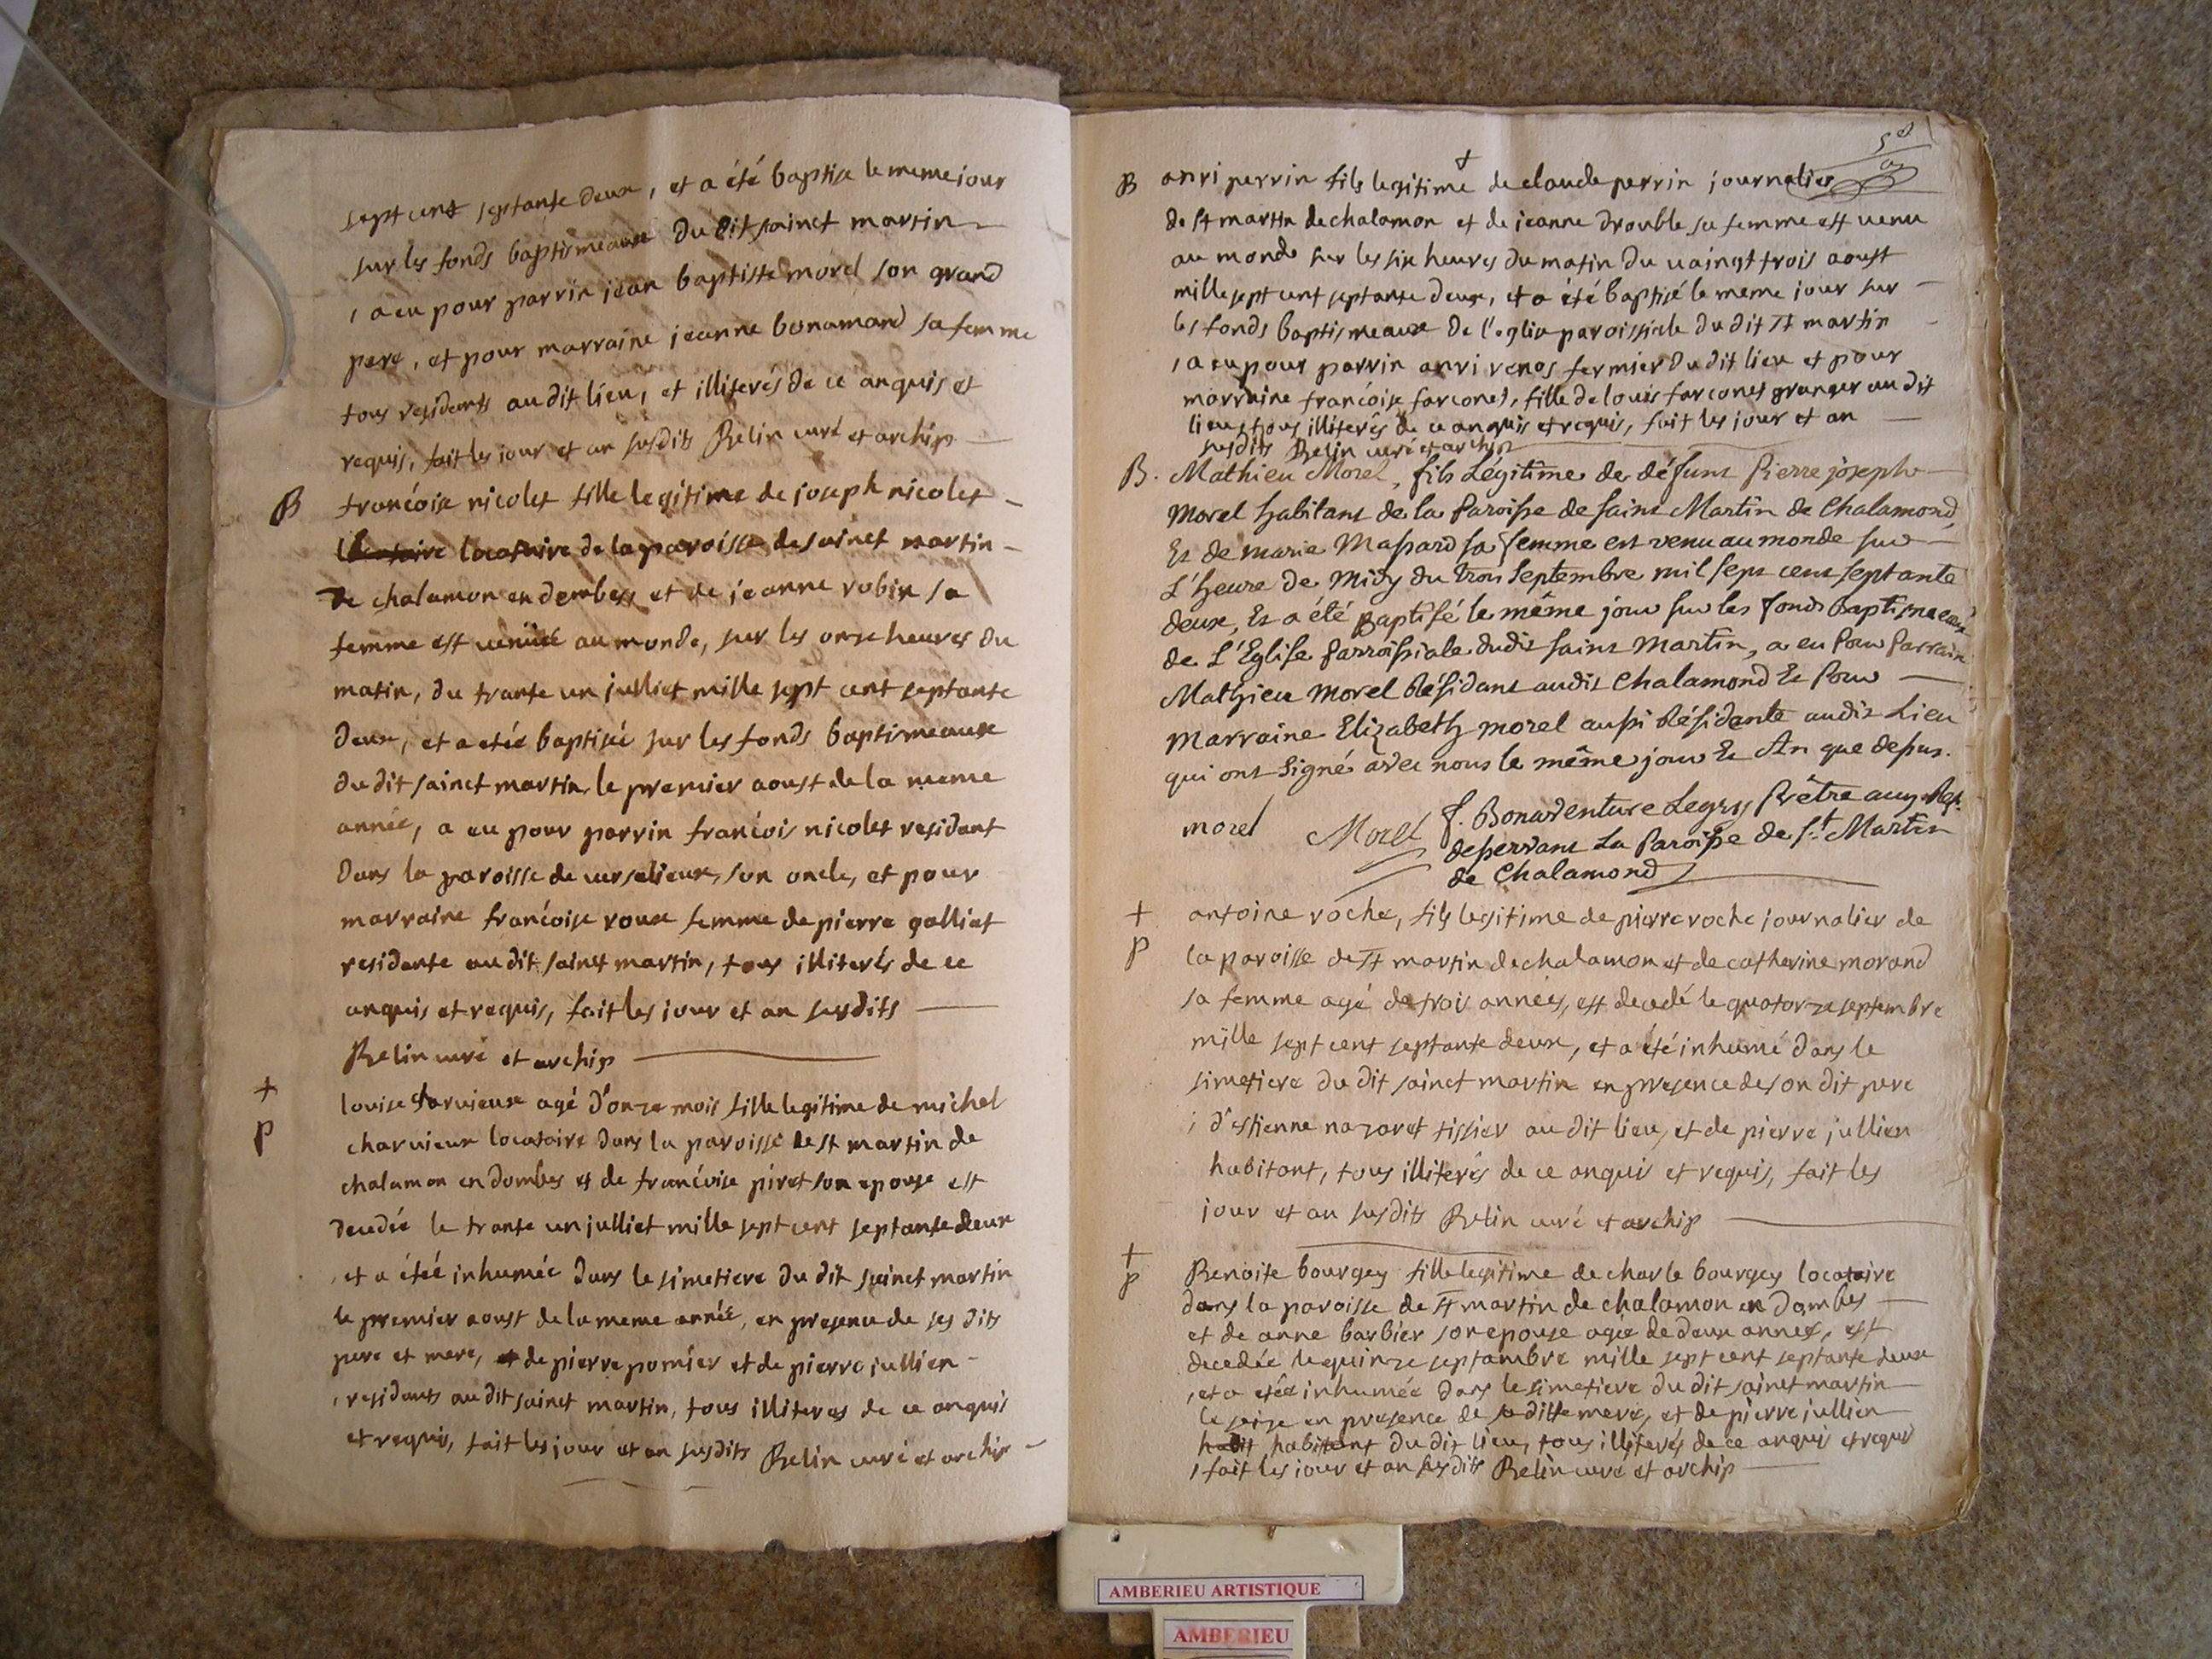 sept cent septante deux, et a été baptise le meme jour
sur les fonds baptismeaux du dit sainct martin
, a eu pour parrin jean baptiste morel son grand
pere, et pour marraine jeanne bonamand sa femme
tous residents au dit lieu, et illiterés de ce anquis et
requis, fait les jour et an susdits Belin curé et archip
B françoise nicolet fille legitime de joseph nicolet
locataire de la paroisse de sainct martin
de chalamon en dombes et de jeanne robin sa
femme est venüe au monde, sur les onze heures du
matin, du trante un julliet mille sept cent septante
deux, et a etée baptiséé sur les fonds baptismeaux
du dit sainct martin, le premier aoust de la meme
année, a eu pour parrin françois nicolet residant
dans la paroisse de versalieux, son oncle, et pour
marraine françoise roux femme de pierre galliet
residante au dit sainct martin, tous illiterés de ce
anquis et requis, fait les jour et an susdits
Belin curé et archip
+ louise charvieux agé d'onze mois fille legitime de michel
P charvieux locataire dans la paroisse de st martin de
chalamon en dombes et de françoise piret son epouse est
decedée le trante un julliet mille sept cent septante deux
, et a étéé inhumée dans le simetiere du dit sainct martin
le premier aoust de la meme année, en presence de ses dits
pere et mere, et de pierre pomier et de pierre jullien
, residants au dit sainct martin, tous illiteres de ce anquis
et requis, fait les jour et an susdits Belin curé et archip
5e
B anri perrin fils legitime de claude perrin journalier
de st martin de chalamon et de jeanne drouble sa femme est venu
au monde sur les six heures du matin du vaingt trois aoust
mille sept cent septante deux, et a été baptisé le meme jour sur
les fonds baptismeaux de l'eglise paroissiale du dit st martin
, a eu pour parrin anri renos fermier du dit lieu et pour
marraine françoise farconet, fille de louis farconet granger au dit
lieu, tous illiterés de ce anquis et requis, fait les jour et an
susdits Belin curé et archip
B. Mathieu Morel, fils Légitime de défunt Pierre joseph
Morel habitant de la Paroisse de saint Martin de Chalamond,
Et de marie Massard sa femme est venu au monde sur
L'heure de Midy du trois Septembre mil sept cent septante
deux, Et a été Baptisé le même jour sur les fonds Baptismeaux
de L'Eglise Parroissiale dudit saint Martin, a eu Pour Parrain
Mathieu Morel Résidant audit Chalamond Et Pour
Marraine Elizabeth morel aussi Résidante audit Lieu
qui ont Signé avec nous le même jour Et An que dessus.
morel Morel f. Bonaventure Legry Prêtre aug. Rel.
desservant La Paroisse de St Martin
de Chalamond
+ antoine roche, fils legitime de pierre roche journalier de
P la paroisse de st martin de chalamon et de catherine morand
sa femme agé de trois années, est decedé le quatorze septembre
mille sept cent septante deux, et a été inhumé dans le
simetiere du dit sainct martin en presence de son dit pere
, d'estienne nazaret tissier au dit lieu, et de pierre jullien
habitant, tous illiterés de ce anquis et requis, fait les
jour et an susdits Belin curé et archip
+ Benoite bourgey fille legitime de charle bourgey locataire
P dans la paroisse de st martin de chalamon en dombes
et de anne barbier son epouse agée de deux année, est
decedée le quinze septambre mille sept cent septante deux
, et a etée inhumée dans le simetiere du dit sainct martin
le seize en presence de sa ditte mere, et de pierre jullien
habit habitant du dit lieu, tous illiterés de ce anquis et requis
, fait les jour et an susdits Belin curé et archip
AMBERIEU ARTISTIQUE
AMBERIEU